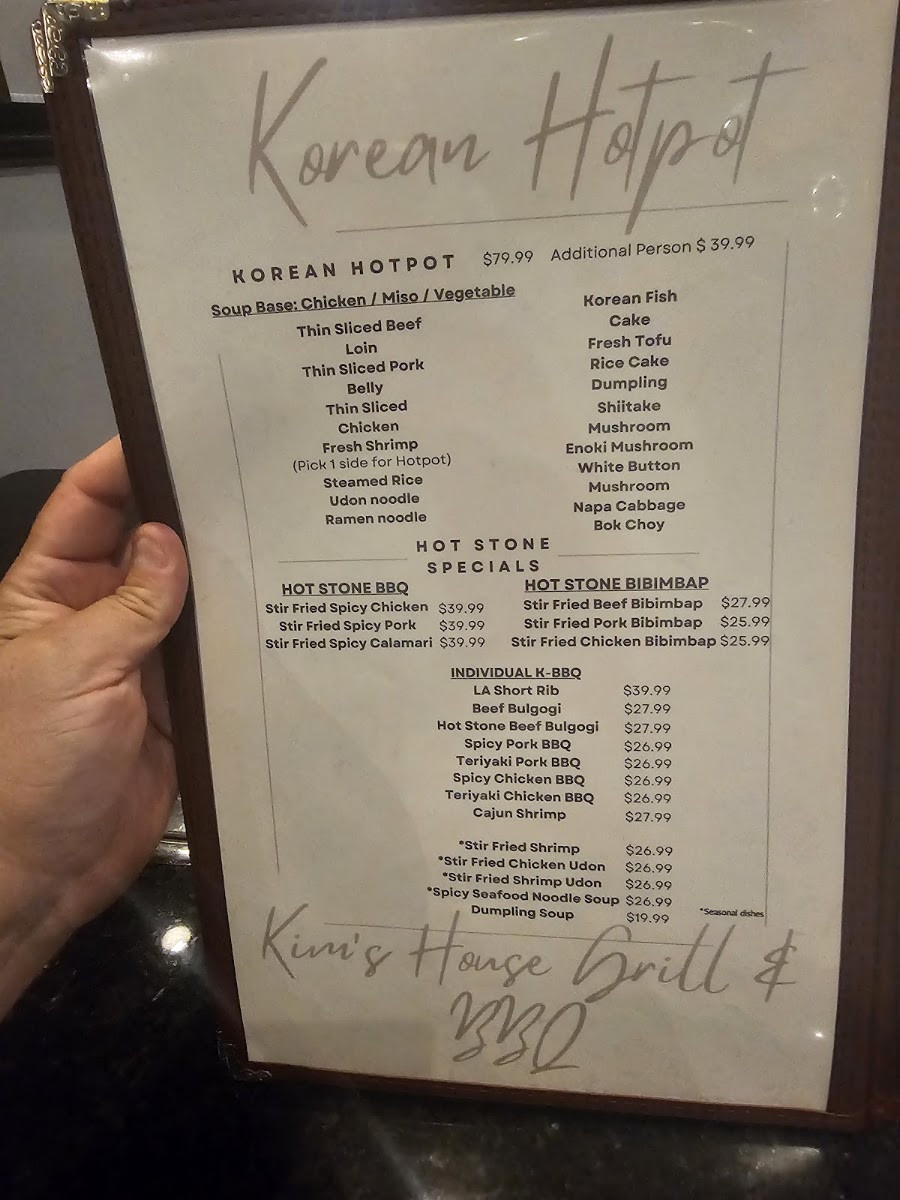 Korean Hotpot
KOREAN HOTPOT $79.99 Additional Person $ 39.99
Soup Base: Chicken / Miso / Vegetable
Thin Sliced Beef
Loin
Thin Sliced Pork
Belly
Thin Sliced
Chicken
Fresh Shrimp
(Pick 1 side for Hotpot)
Steamed Rice
Udon noodle
Ramen noodle
Korean Fish
Cake
Fresh Tofu
Rice Cake
Dumpling
Shiitake
Mushroom
Enoki Mushroom
White Button
Mushroom
Napa Cabbage
Bok Choy
HOT STONE
SPECIALS
HOT STONE BBQ
Stir Fried Spicy Chicken $39.99
Stir Fried Spicy Pork $39.99
Stir Fried Spicy Calamari $39.99
HOT STONE BIBIMBAP
Stir Fried Beef Bibimbap $27.99
Stir Fried Pork Bibimbap $25.99
Stir Fried Chicken Bibimbap $25.99
INDIVIDUAL K-BBQ
LA Short Rib $39.99
Beef Bulgogi $27.99
Hot Stone Beef Bulgogi $27.99
Spicy Pork BBQ $26.99
Teriyaki Pork BBQ $26.99
Spicy Chicken BBQ $26.99
Teriyaki Chicken BBQ $26.99
Cajun Shrimp $27.99
*Stir Fried Shrimp $26.99
*Stir Fried Chicken Udon $26.99
*Stir Fried Shrimp Udon $26.99
*Spicy Seafood Noodle Soup $26.99
Dumpling Soup $19.99
*Seasonal dishes
Kim's House Grill &
BBQ